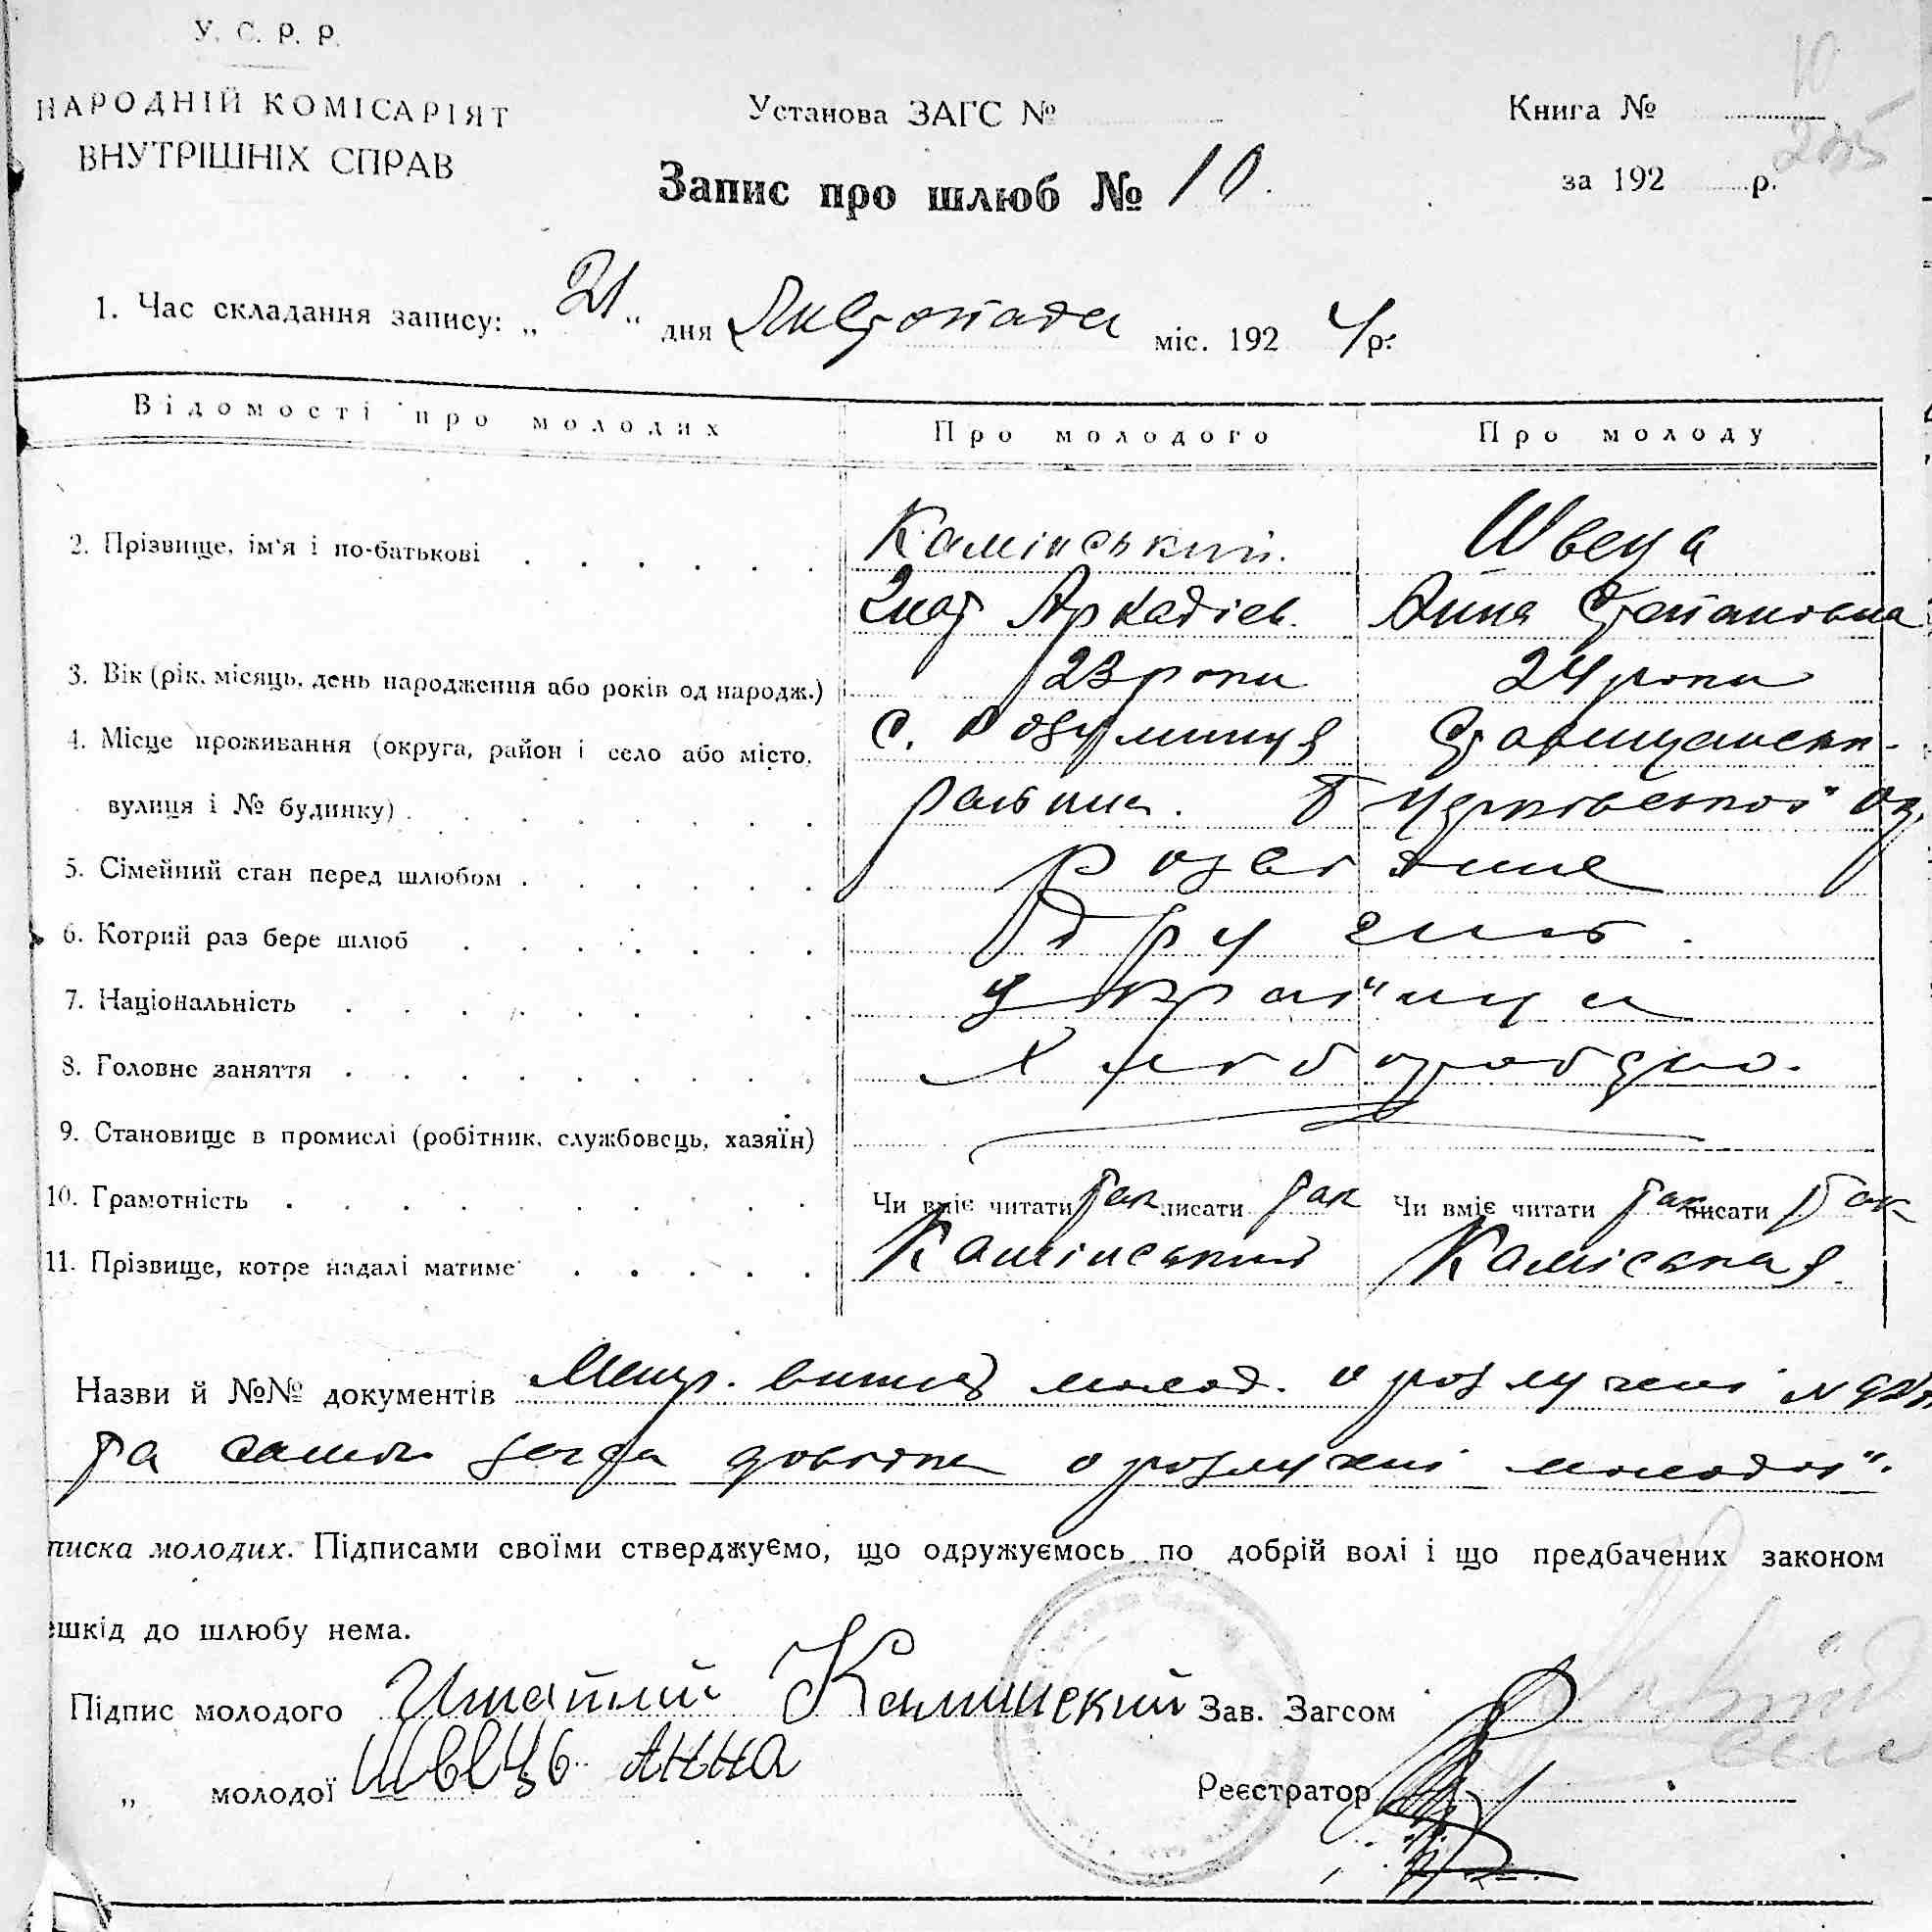 У. С. Р. Р.
НАРОДНІЙ КОМІСАРІЯТ
ВНУТРІШНІХ СПРАВ
Установа ЗАГС №
Книга № 10
205
за 192 р.
Запис про шлюб № 10.
1. Час складання запису: „21“ дня Листопада міс. 192 4 р.
Відомості про молодих Про молодого Про молоду
2. Прізвище, ім'я і по-батькові Камінський. Швеца
Гнат Аркадіев. Анна Степановна
3. Вік (рік, місяць, день народження або років од народж.) 23 роки 24 роки
4. Місце проживання (округа, район і село або місто, с. Розумниця Ставищанськ-
вулиця і № будинку) району. Б Церковської Ок.
5. Сімейний стан перед шлюбом розведение
6. Котрий раз бере шлюб другий.
7. Національність українци
8. Головне заняття Хлібороство.
9. Становище в промислі (робітник, службовець, хазяїн)
10. Грамотність Чи вміє читати так писати так Чи вміє читати так писати так
11. Прізвище, котре надалі матиме Камінський Каміськая.
Назви й №№ документів Метр. витяг молод. о розлучені №
та самои довідка о розлучені молодої.
писка молодих. Підписами своїми стверджуємо, що одружуємось по добрій волі і що предбачених законом
шкід до шлюбу нема.
Підпис молодого Игнатий Каминский Зав. Загсом
„ молодої Швець Анна Реєстратор